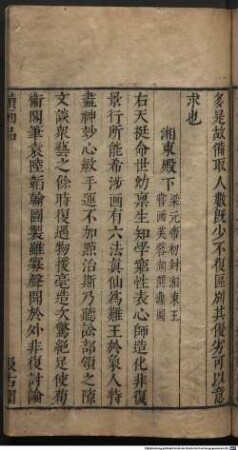 多是故備取人數既少不復區別其優劣可以意
求也
湘東殿下 梁元帝初封湘東王
嘗畫芙蓉湖醮鼎圖
右天挺命世幼稟生知學窮性表心師造化非復
景行所能希涉畫有六法真仙為難王於象人特
盡神妙心敏手運不加點治斯乃聽訟部領之隙
文談眾藝之餘時復遇物援毫造次驚絕足使荀
衛閣筆袁陸韜翰圖製雖寡聲聞於外非復討論
續畫品
汲古閣